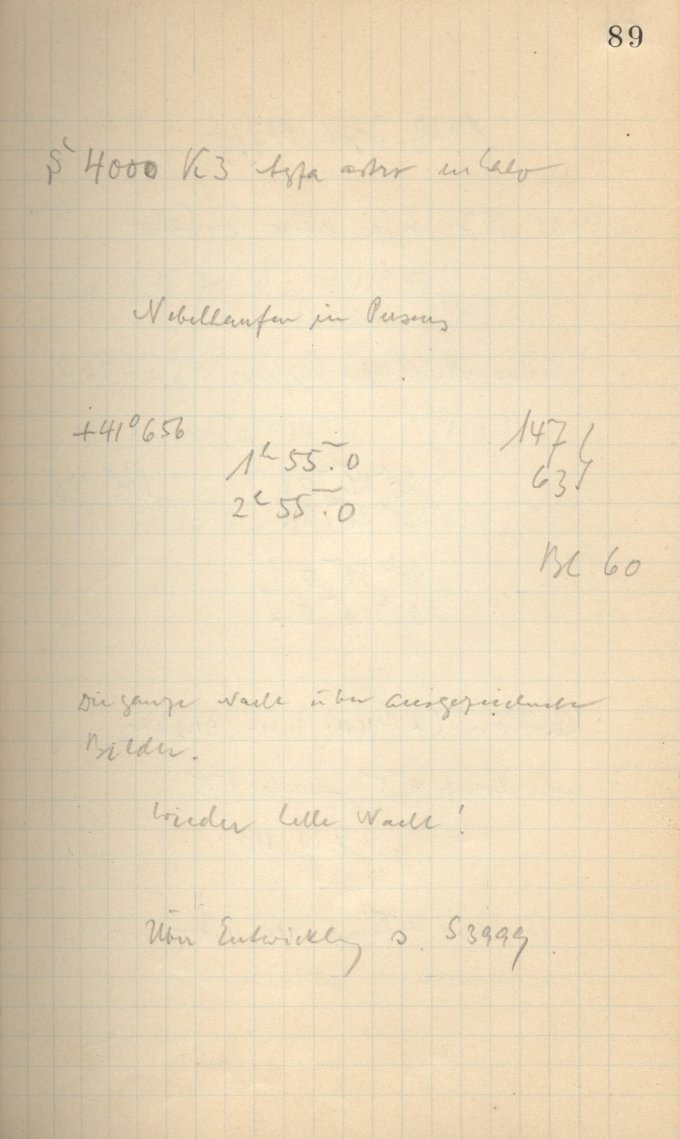 89
S 4000 K3 Agfa astro
Nebelhaufen in Perseus
+41° 656
147
1h 55m.0
63
2h 55m.0
Bl 60
Die ganze Nacht über ausgezeichnete
Bilder.
Wieder helle Nacht!
Über Entwicklung s. S3999